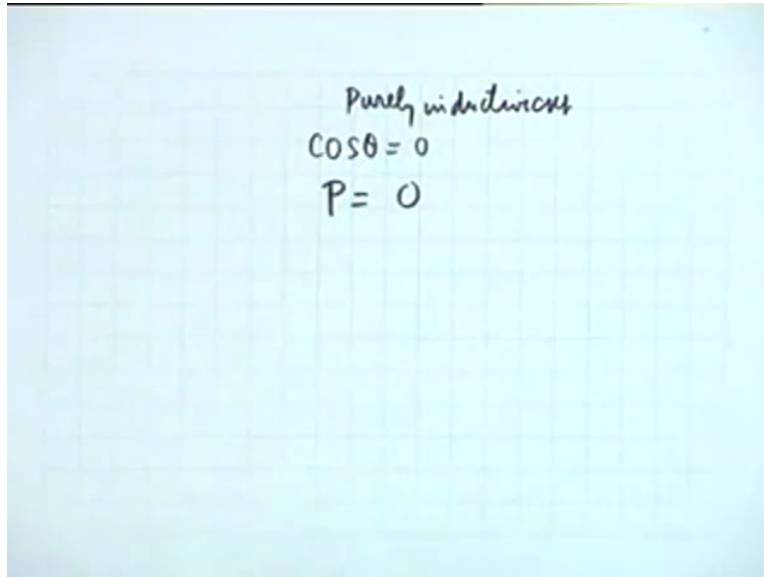 Purely inductive case
COSθ = 0
P = 0